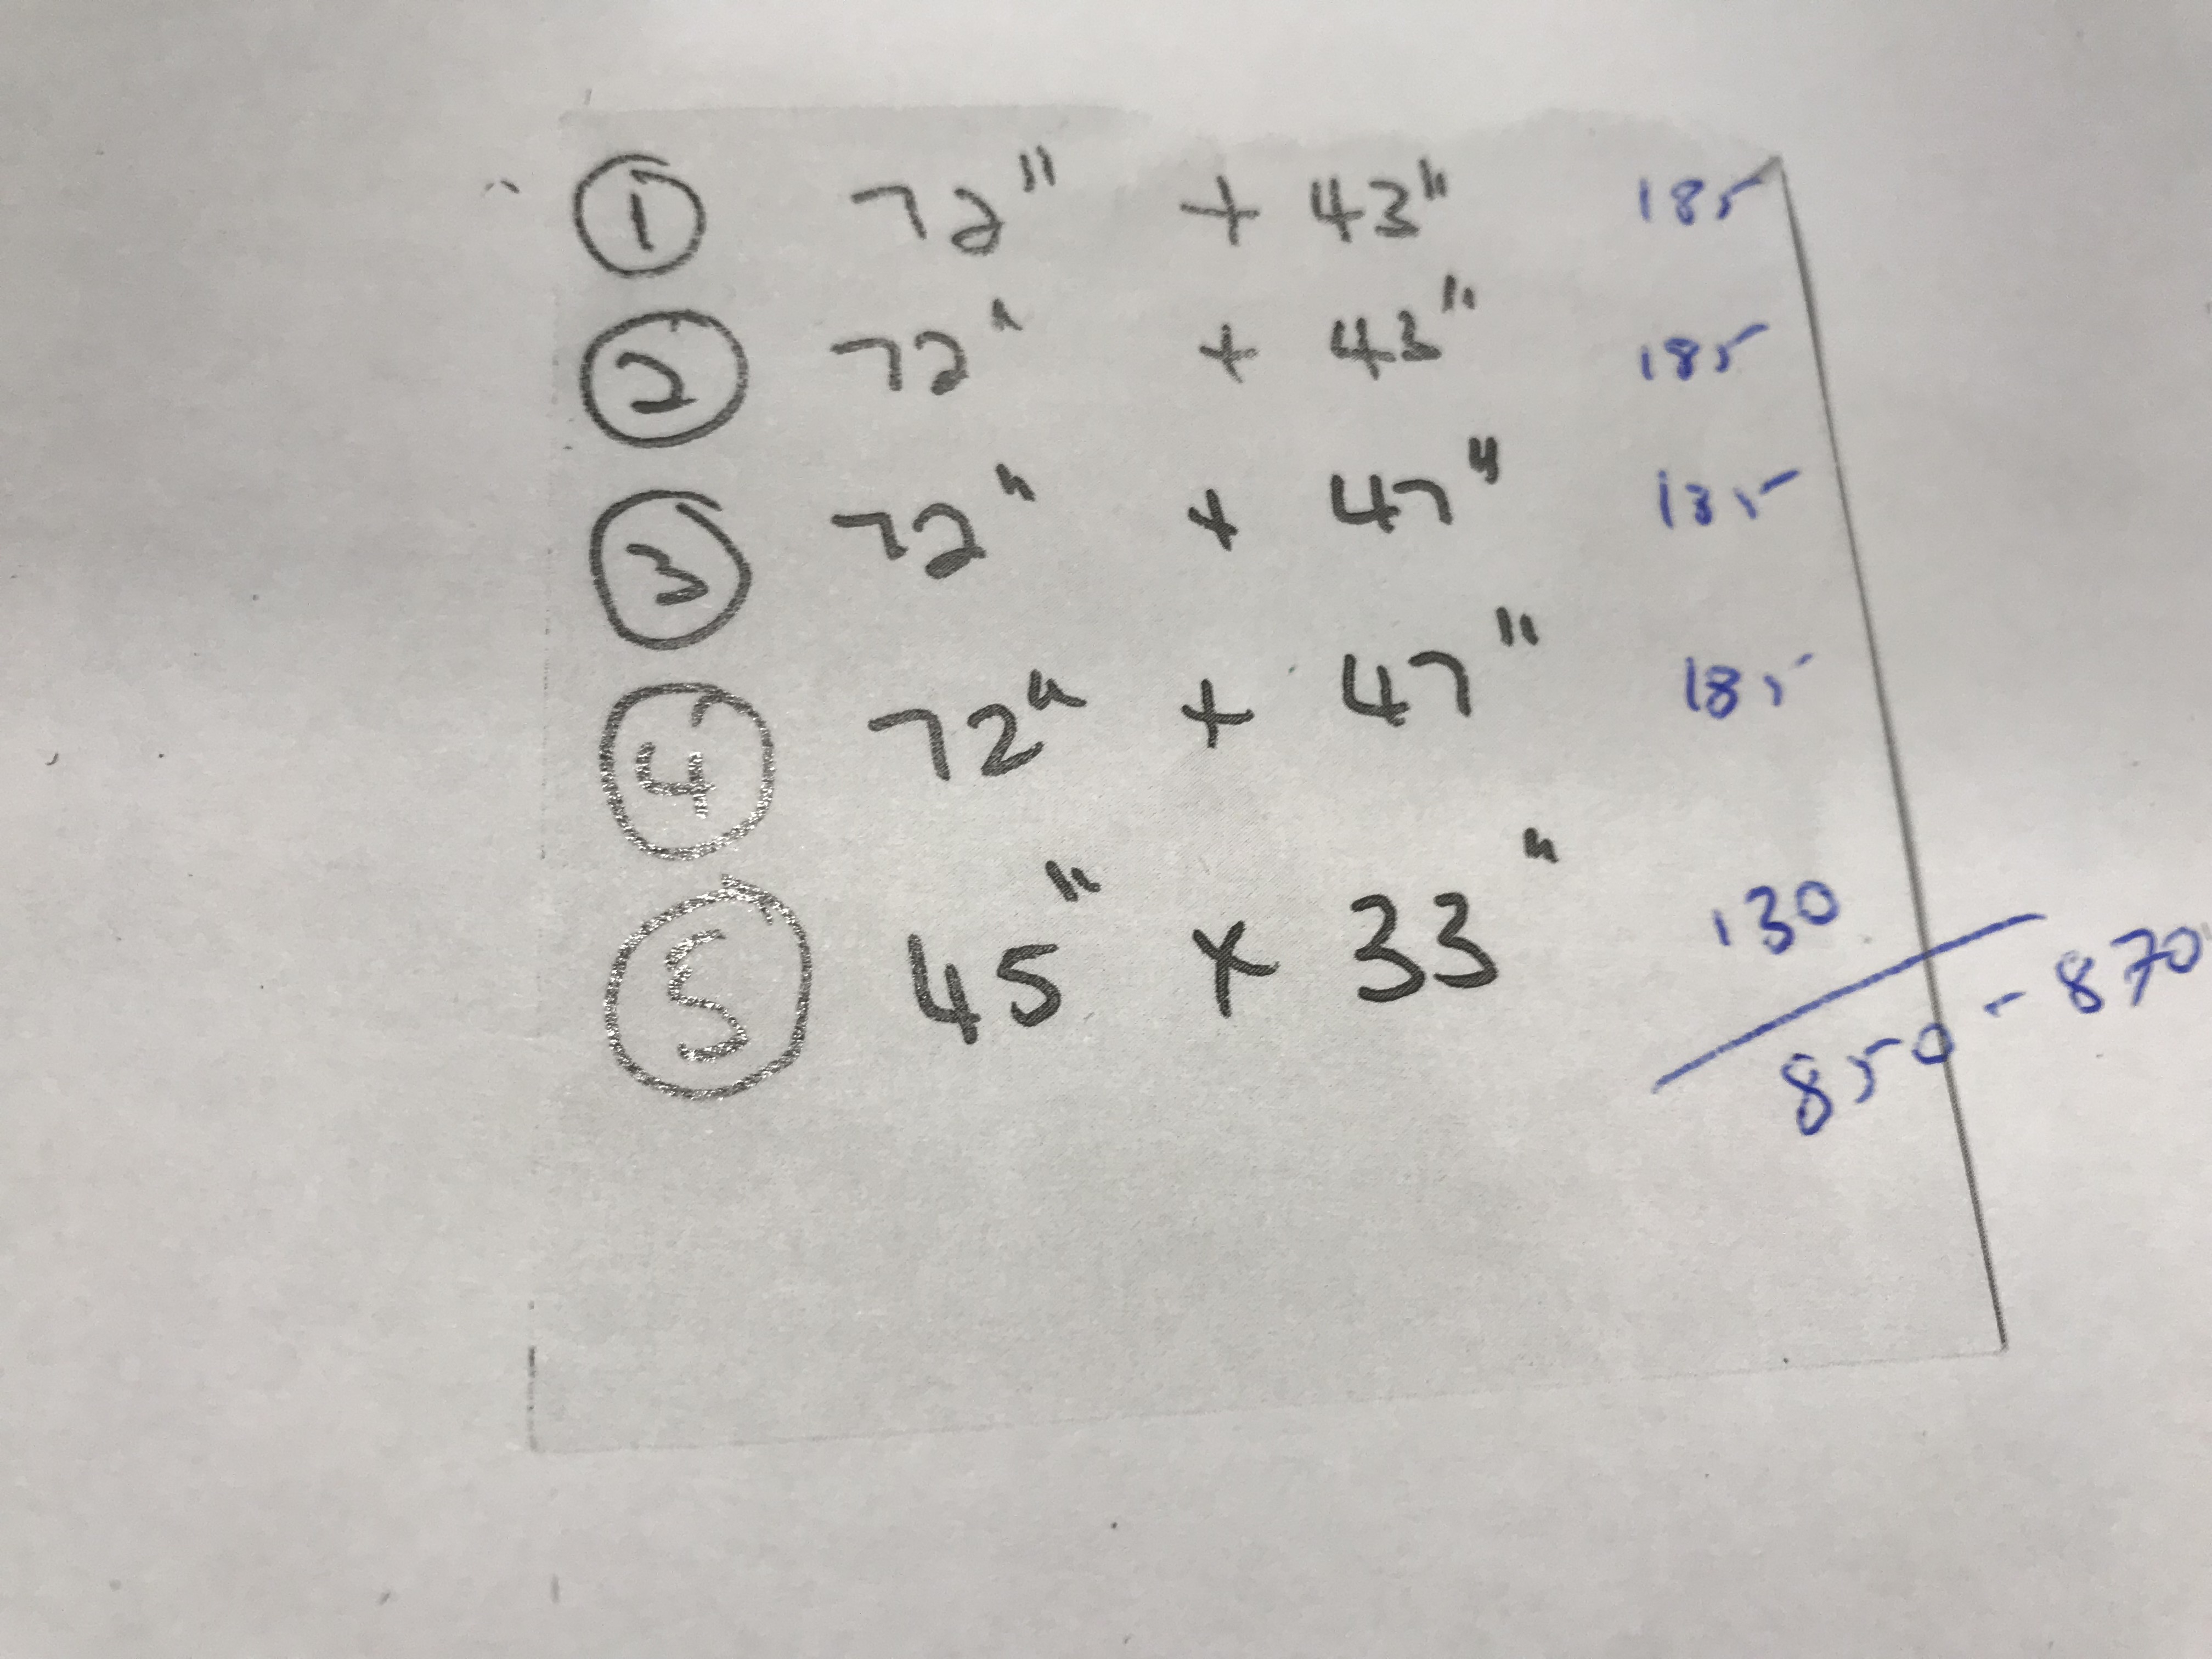 1 72" x 43" 185
2 72" x 43" 185
3 72" x 47" 185
4 72" x 47" 185
5 45" x 33" 130
850 - 870